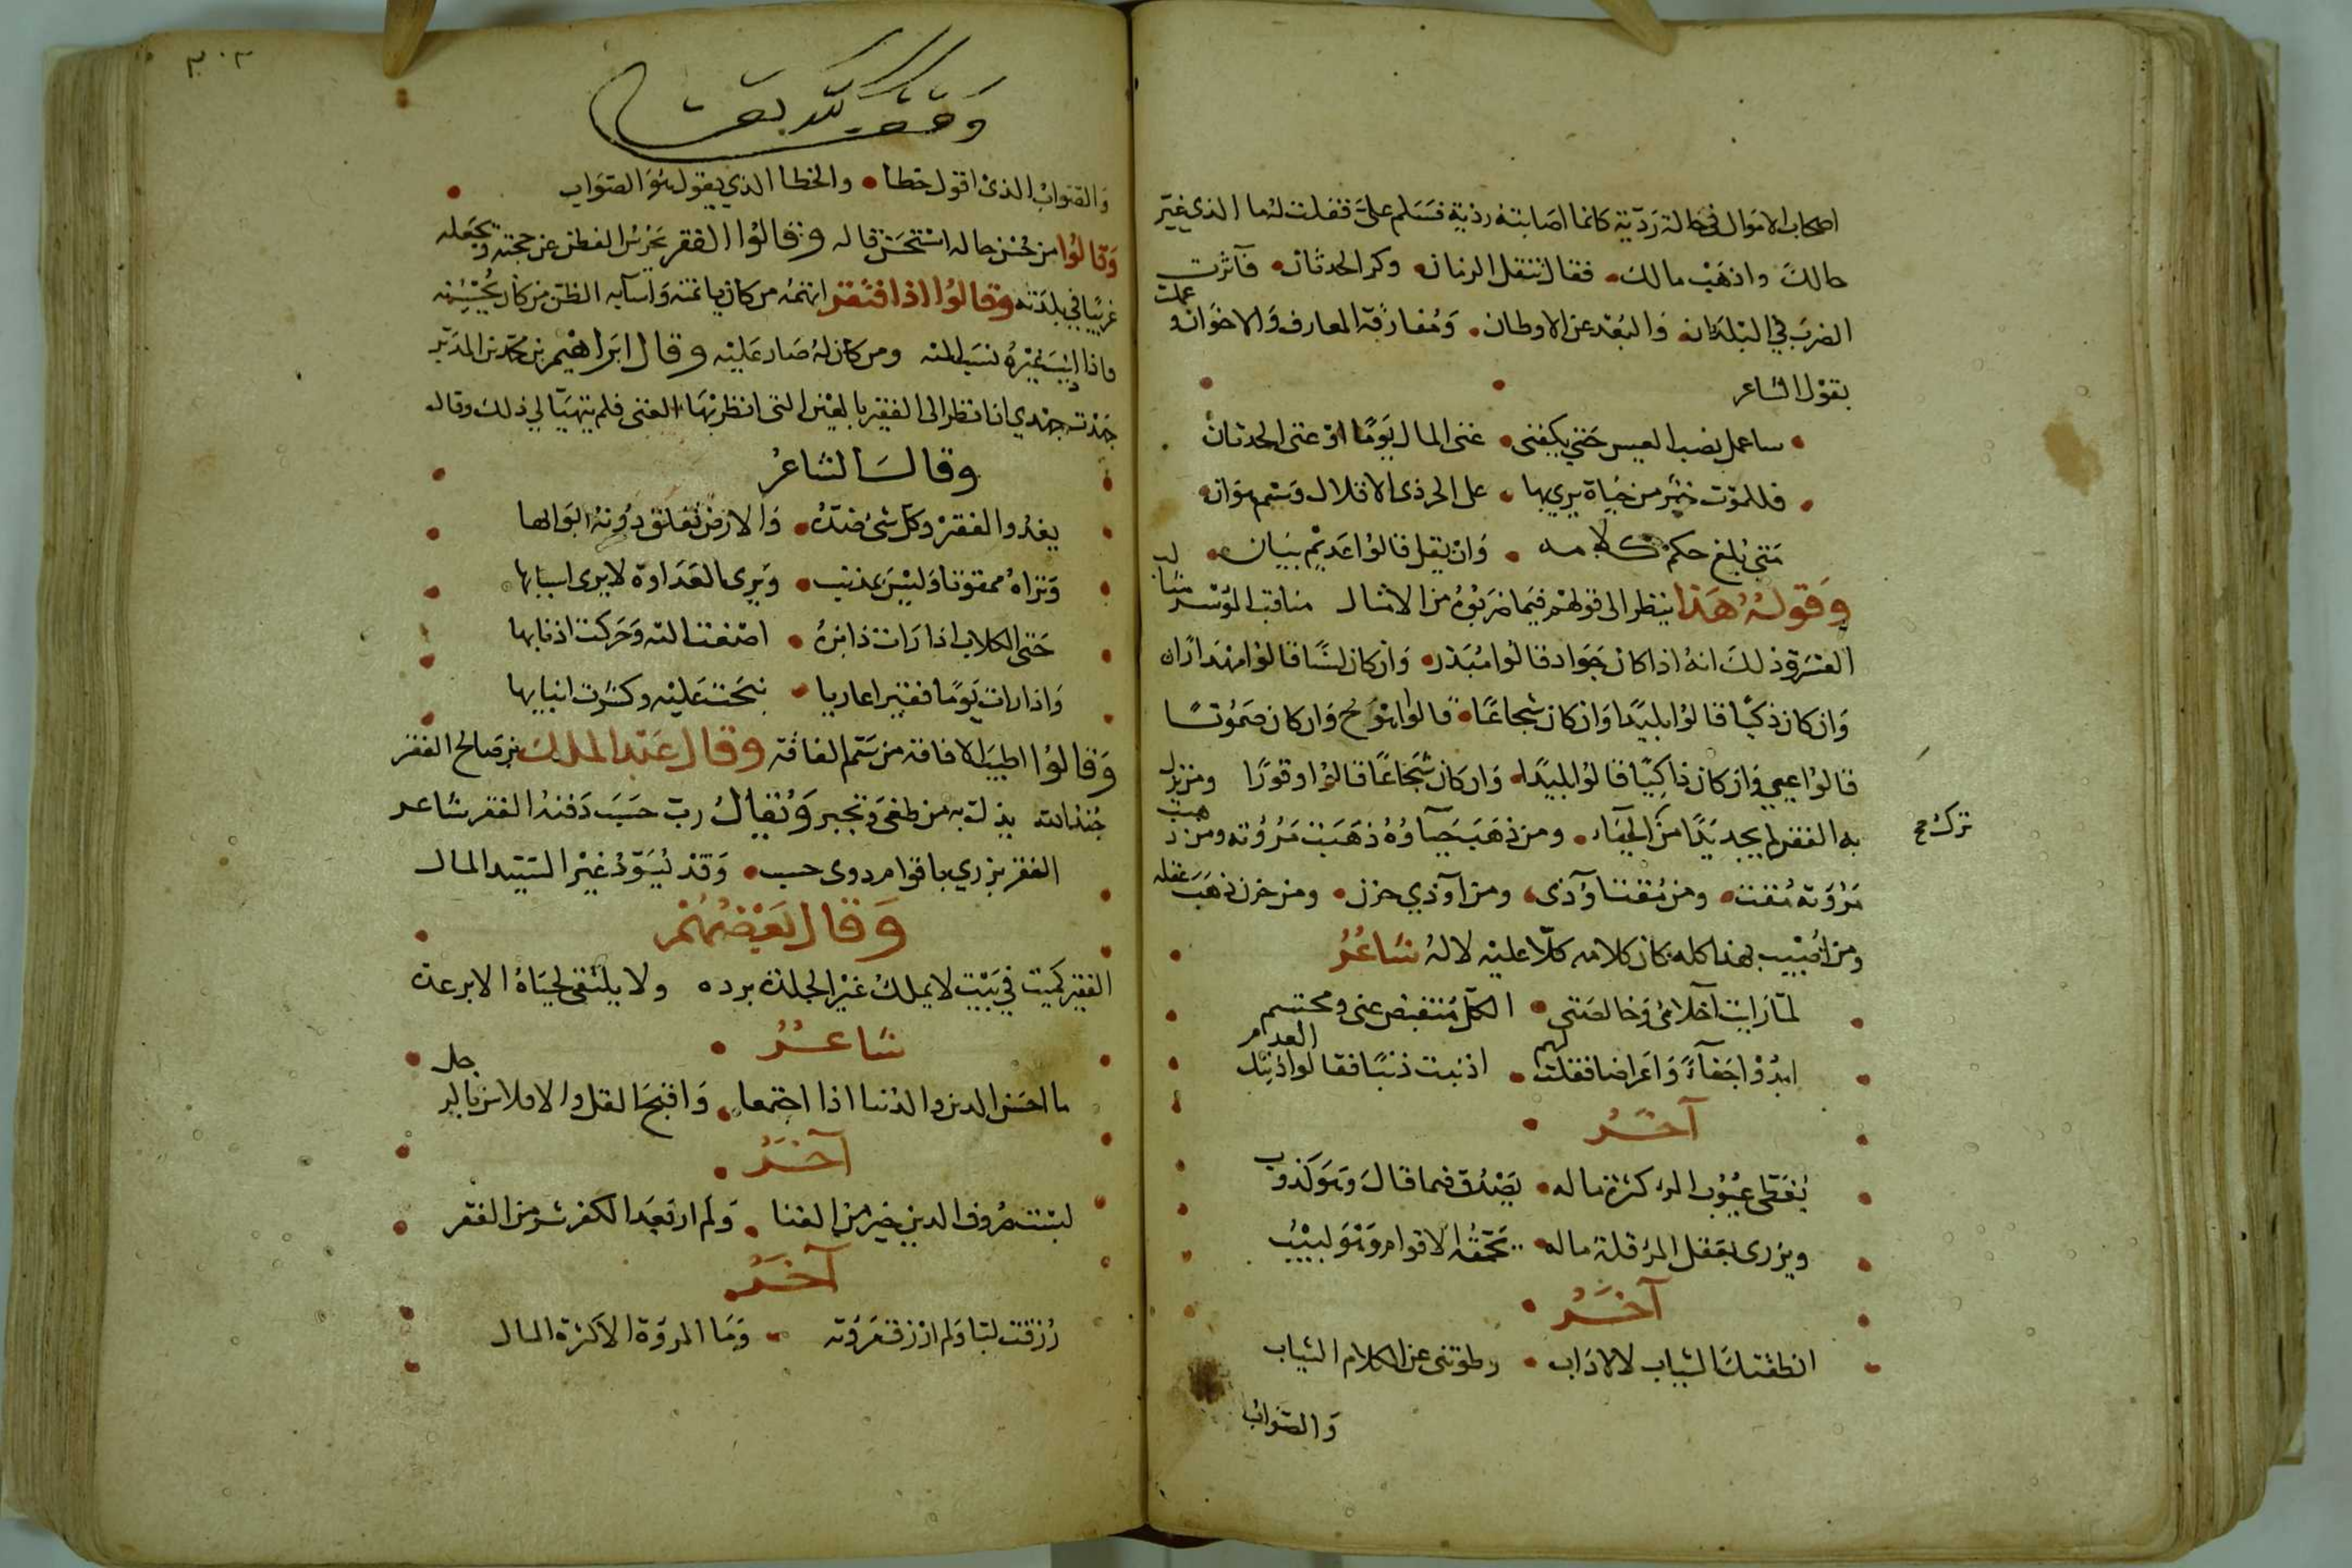 اصحاب الاموال في حالة رديّة كانما اصابته رذية فسلم علىّ فقلت له ما الذي غيّر
حالك واذهب مالك فقال تنقل الزمان وكر الحدثان فآثرت
الضرب في البلدان والبُعْد عن الاوطان ومُفارقة المعارف والاخوان و
عملت
بقول الشاعر
ساعمل نصب العيس حتى يكفنى غنى المال يومًا او غنى الحدثان
فللموت خير من حياة يرى بها على الحر ذى الاقلال وسم هوان
متى يبلغ حكم كلامه وان يقل قالوا عديم بيان
وقوله هذا ينظر الى قولهم فيما ضربوه من الامثال مناقب الموسر مثالب
العسر وذلك انهُ اذا كان جوادا قالوا مُبَذر وان كان لسنًا قالوا مهدارًا
وان كان ذكيًا قالوا بليدًا وان كان شجاعًا قالوا اهوج وان كان صموتًا
قالوا عيي وان كان ذاكيًا قالوا بليدًا وان كان شجاعًا قالوا وقورًا ومن نزل
ترك صح
به الفقر لم يجد بدًا من الحياء ومن ذهب حياؤه ذهبت مروته ومن ذهب
مروته مُقت ومن مُقت أوذى ومن أوذي حزن ومن حزن ذهب عقله
ومن اُصيب بهذا كله كان كلامه كلّا عليه لا لهُ شاعرُ
لمّا رايت اخلائى وخالصتى الكلّ منقبض عنى ومحتشم
ابدوا جفاءً واعراضا فقلت لهم اذنبت ذنبًا فقالوا ذنبك العدم
آخرُ
يُغطى عيوب المرء كثرة ماله يصدق فيما قال وهو كذوب
ويزرى بعقل المرء قلة ماله تحمّقه الاقوام وهو لبيبُ
آخرُ
انطقتك الثياب لا الاداب وطوتنى عن الكلام الثياب
والصواب
٣٠٣
والصواب الذي اقول خطا والخطا الذي يقول هو الصواب
وقالوا من حُسْن حاله استحسن قاله وقالوا الفقر يخرس الفطن عن حجته ويجعله
غريبًا في بلدته وقالوا اذا افتقر اتهمهُ من كان ياتمنه واساء به الظن من كان يُحْسِنُه
فاذا اذنب غيرهُ نسب اليه ومن كان له صار عليه وقال ابراهيم بن محمد بن المدبّر
جهدت جهدي ان انظر الى الفقير بالعين التى انظر بها الغنى فلم يتهيّا لي ذلك وقال
وقال الشاعرُ
يغدُو الفقير وكل شئ ضدّه والارض تغلق دونهُ ابوابها
وتراهُ ممقوتا وليس بمذنب ويرى العداوة لا يرى اسبابها
حتى الكلاب اذا رات ذا بزة اصغت اليه وحركت اذنابها
واذا رات يومًا فقيرا عاريا نبحت عليه وكشرت انيابها
وقالوا اطيب الافاقة من سم الفاقة وقال عبد الملك بن صالح الفقر
جُند الله يذل به من طغى وتجبر ويُقال رب حسب دفنهُ الفقر شاعر
الفقر يزري باقوام ذوى حسب وقد يُسوّدُ غيْر السيّد المال
وقال بعضهُمْ
الفقير كميت في بيت لا يملك غير الجلدة برده ولا يلتقى لحياهُ الا برعدة
شاعرُ
ما احسن الدين والدُنيا اذا اجتمعا واقبح القل والافلاس بالرجل
آخرُ
لبست صُروف الدين خير من الغنا ولم ار بعد الكفر شر من الفقر
آخرُ
رُزقت لبّا ولم ارزق مروته وما المروة الا كثرة المال